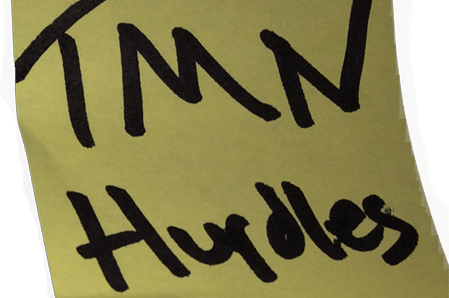 TMN
Hurdles